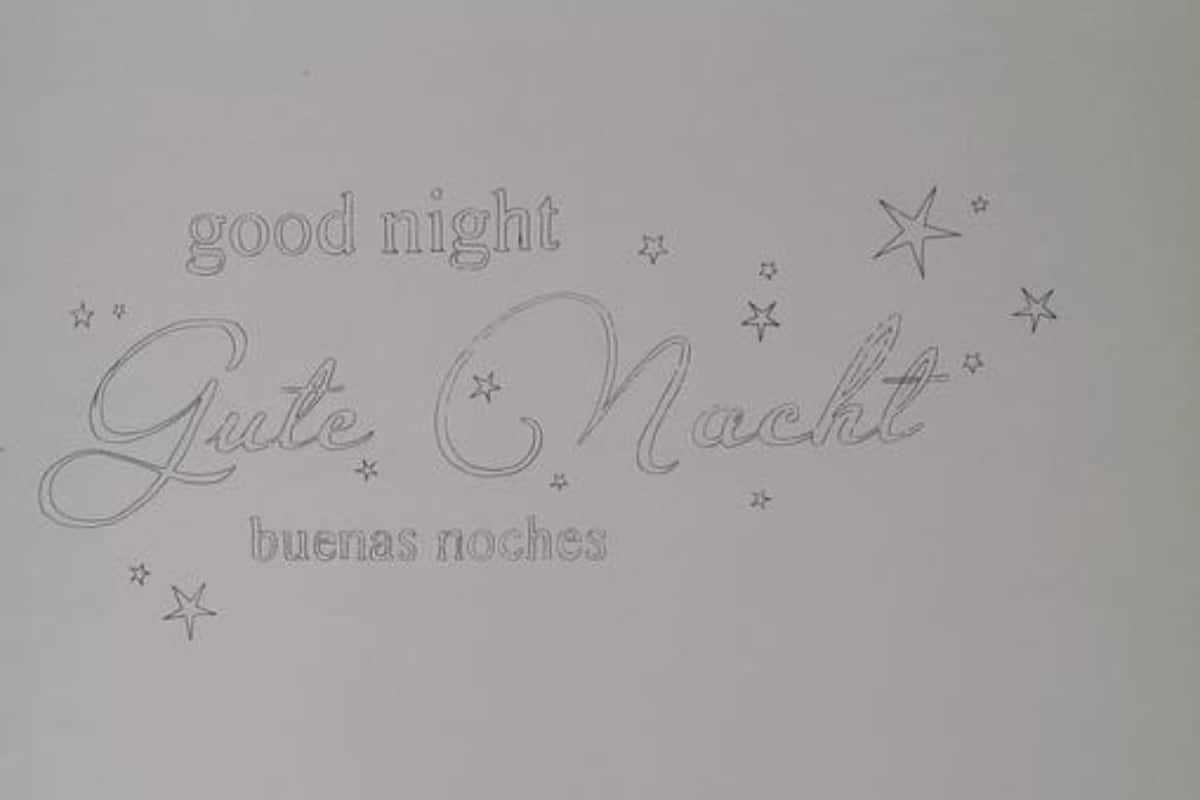 good night
Gute Nacht
buenas noches